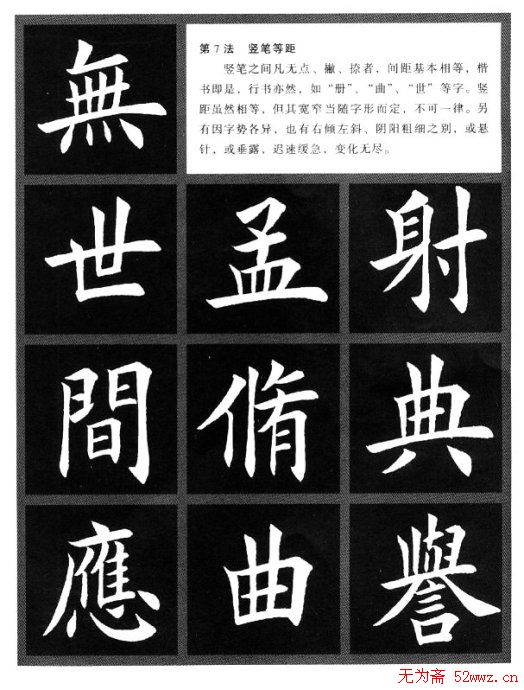 無
第7法 竖笔等距
竖笔之间凡无点、撇、捺者，间距基本相等，楷
书即是，行书亦然，如“册”、“曲”、“世”等字。竖
距虽然相等，但其宽窄当随字形而定，不可一律。另
有因字势各异，也有右倾左斜、阴阳粗细之别，或悬
针，或垂露，迟速缓急，变化无尽。
世 孟 射
間 脩 典
應 曲 譽
无为斋 52wwz.cn